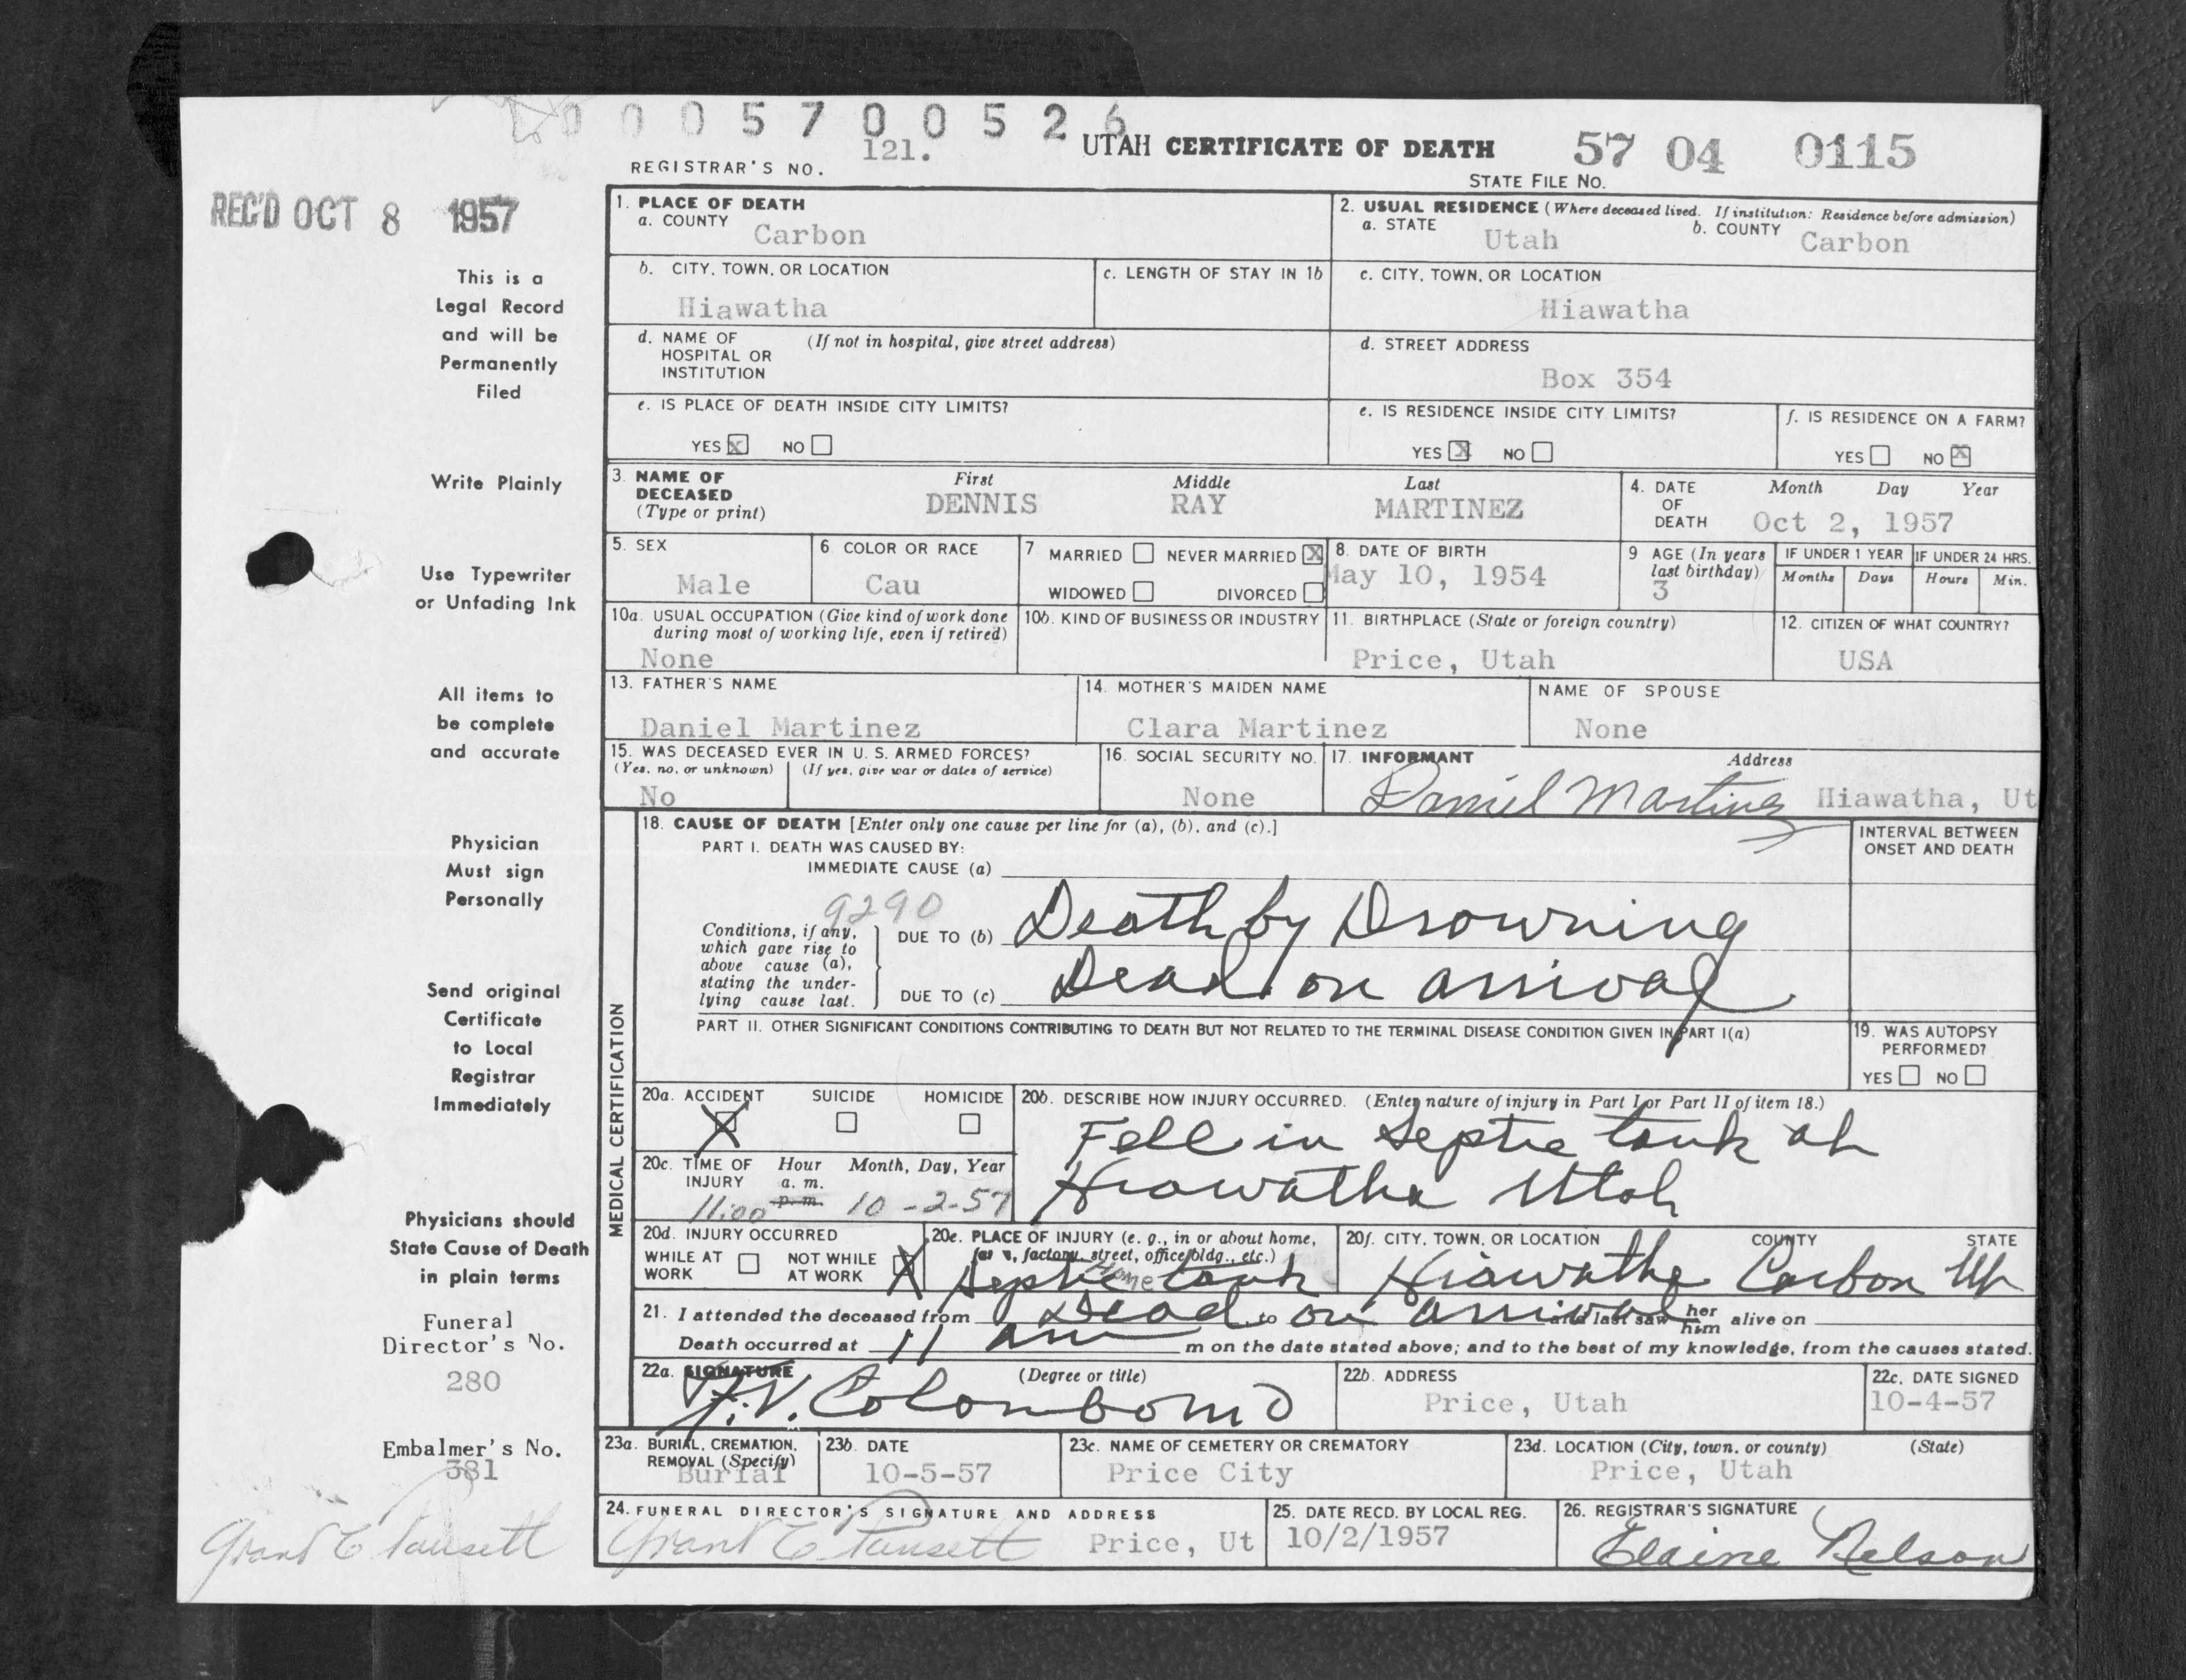 0 0 0 5 7 0 0 5 2 6
REGISTRAR'S NO. 121.
UTAH CERTIFICATE OF DEATH
57 04 0115
STATE FILE NO.
REC'D OCT 8 1957
This is a
Legal Record
and will be
Permanently
Filed
Write Plainly
Use Typewriter
or Unfading Ink
All items to
be complete
and accurate
Physician
Must sign
Personally
Send original
Certificate
to Local
Registrar
Immediately
Physicians should
State Cause of Death
in plain terms
Funeral
Director's No.
280
Embalmer's No.
381
1. PLACE OF DEATH
a. COUNTY
Carbon
2. USUAL RESIDENCE (Where deceased lived. If institution: Residence before admission)
a. STATE Utah b. COUNTY Carbon
b. CITY, TOWN, OR LOCATION
Hiawatha
c. LENGTH OF STAY IN 1b
c. CITY, TOWN, OR LOCATION
Hiawatha
d. NAME OF HOSPITAL OR INSTITUTION (If not in hospital, give street address)
d. STREET ADDRESS
Box 354
e. IS PLACE OF DEATH INSIDE CITY LIMITS?
YES X NO
e. IS RESIDENCE INSIDE CITY LIMITS?
YES X NO
f. IS RESIDENCE ON A FARM?
YES NO X
3. NAME OF DECEASED (Type or print)
First Middle Last
DENNIS RAY MARTINEZ
4. DATE OF DEATH Month Day Year
Oct 2, 1957
5. SEX
Male
6. COLOR OR RACE
Cau
7. MARRIED NEVER MARRIED X
WIDOWED DIVORCED
8. DATE OF BIRTH
May 10, 1954
9 AGE (In years last birthday)
3
IF UNDER 1 YEAR
Months Days
IF UNDER 24 HRS.
Hours Min.
10a. USUAL OCCUPATION (Give kind of work done during most of working life, even if retired)
None
10b. KIND OF BUSINESS OR INDUSTRY
11. BIRTHPLACE (State or foreign country)
Price, Utah
12. CITIZEN OF WHAT COUNTRY?
USA
13. FATHER'S NAME
Daniel Martinez
14. MOTHER'S MAIDEN NAME
Clara Martinez
NAME OF SPOUSE
None
15. WAS DECEASED EVER IN U. S. ARMED FORCES?
(Yes, no, or unknown) (If yes, give war or dates of service)
No
16. SOCIAL SECURITY NO.
None
17. INFORMANT Address
Daniel Martinez Hiawatha, Ut
MEDICAL CERTIFICATION
18. CAUSE OF DEATH [Enter only one cause per line for (a), (b), and (c).]
PART I. DEATH WAS CAUSED BY:
IMMEDIATE CAUSE (a)
INTERVAL BETWEEN ONSET AND DEATH
9290
Conditions, if any, which gave rise to above cause (a), stating the underlying cause last.
DUE TO (b) Death by Drowning
DUE TO (c) Dead on arrival
PART II. OTHER SIGNIFICANT CONDITIONS CONTRIBUTING TO DEATH BUT NOT RELATED TO THE TERMINAL DISEASE CONDITION GIVEN IN PART I(a)
19. WAS AUTOPSY PERFORMED?
YES NO
20a. ACCIDENT SUICIDE HOMICIDE
X
20b. DESCRIBE HOW INJURY OCCURRED. (Enter nature of injury in Part I or Part II of item 18.)
Fell in Septic tank at
Hiawatha Utah
20c. TIME OF INJURY Hour a. m. p. m. Month, Day, Year
11:00 10-2-57
20d. INJURY OCCURRED
WHILE AT WORK NOT WHILE AT WORK X
20e. PLACE OF INJURY (e. g., in or about home, farm, factory, street, office bldg., etc.)
Home
Septic tank
20f. CITY, TOWN, OR LOCATION COUNTY STATE
Hiawatha Carbon Ut
21. I attended the deceased from Dead to on arrival and last saw her him alive on
Death occurred at 11 am m on the date stated above; and to the best of my knowledge, from the causes stated.
22a. SIGNATURE (Degree or title)
F. V. Colombo MD
22b. ADDRESS
Price, Utah
22c. DATE SIGNED
10-4-57
23a. BURIAL, CREMATION, REMOVAL (Specify)
Burial
23b. DATE
10-5-57
23c. NAME OF CEMETERY OR CREMATORY
Price City
23d. LOCATION (City, town, or county) (State)
Price, Utah
24. FUNERAL DIRECTOR'S SIGNATURE AND ADDRESS
Grant E Price, Ut
25. DATE RECD. BY LOCAL REG.
10/2/1957
26. REGISTRAR'S SIGNATURE
Elaine Nelson